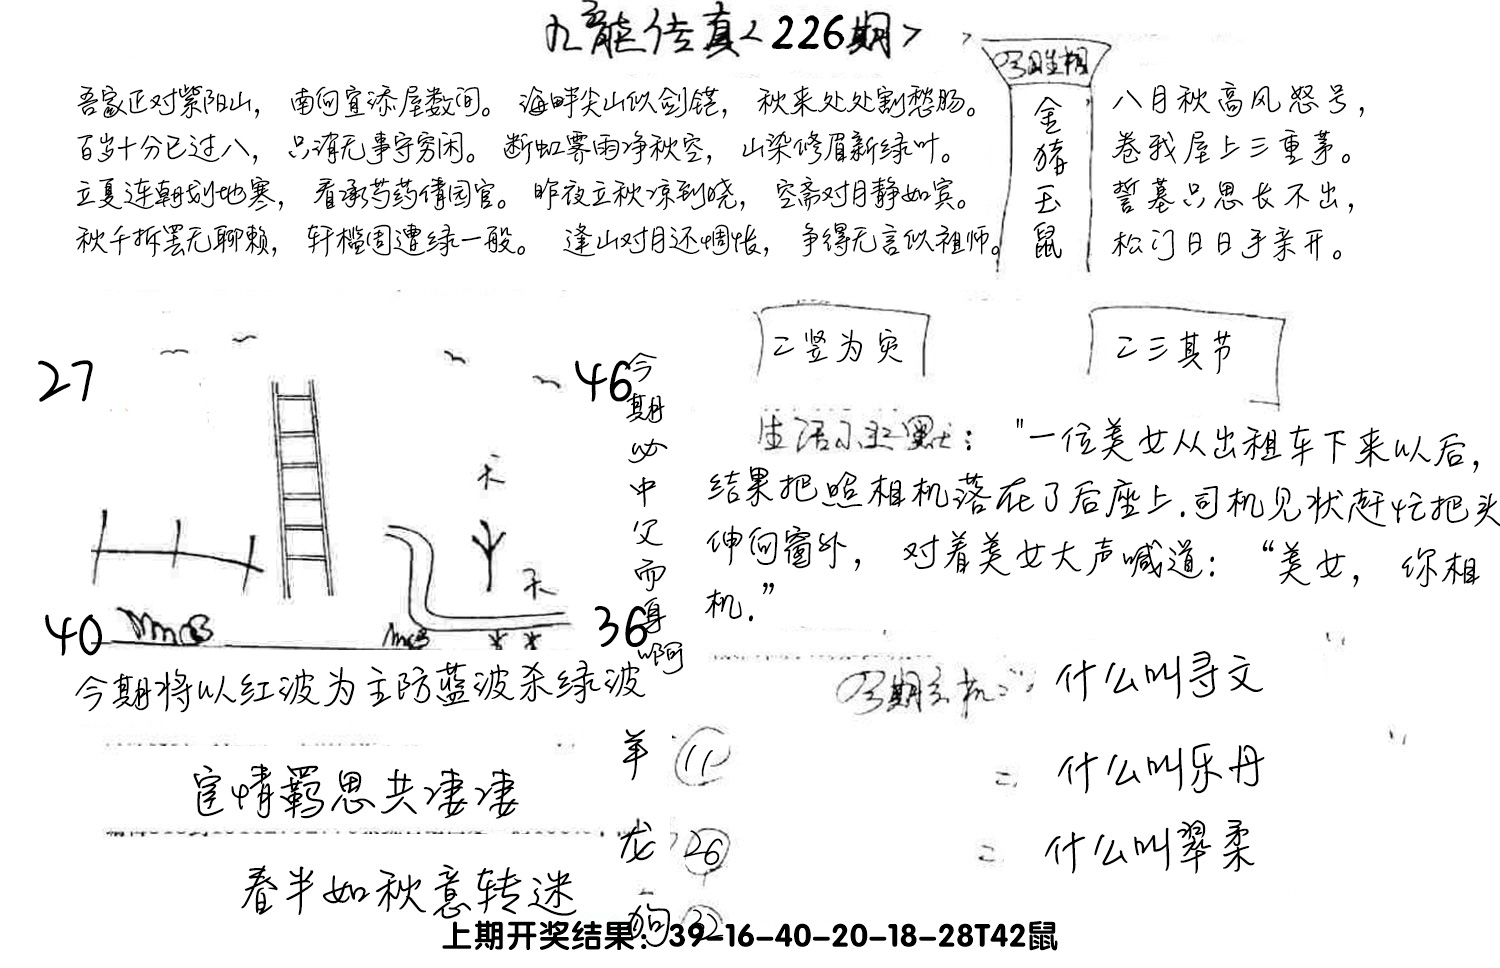 九龙传真<226期>
吾家正对紫阳山，南向宜添屋数间。海畔尖山似剑铓，秋来处处割愁肠。
百岁十分已过八，只消无事守穷闲。断虹霁雨净秋空，山染修眉新绿叶。
立夏连朝刬地寒，看承芍药倩园官。昨夜立秋凉到晓，空斋对月静如宾。
秋千拆罢无聊赖，轩槛周遭绿一般。逢山对月还惆怅，争得无言似祖师。
金猪玉鼠
八月秋高风怒号，
卷我屋上三重茅。
誓墓只思长不出，
松门日日手亲开。
二竖为灾
二三其节
27
46
40
36
今期必中父而身啊
生活小幽默："一位美女从出租车下来以后，
结果把照相机落在了后座上.司机见状赶忙把头
伸向窗外，对着美女大声喊道：“美女，你相
机.”
今期将以红波为主防蓝波杀绿波
宦情羁思共凄凄
春半如秋意转迷
羊 11
龙 26
狗 32
今期玄机： 什么叫寻文
= 什么叫乐丹
= 什么叫翠柔
上期开奖结果：39-16-40-20-18-28T42鼠